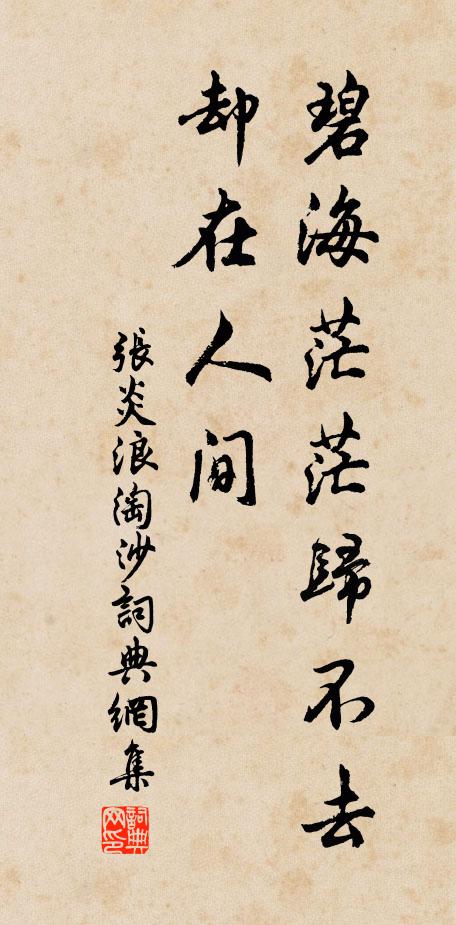 碧海茫茫歸不去
却在人間
張炎浪淘沙詞典網集
詞典网印